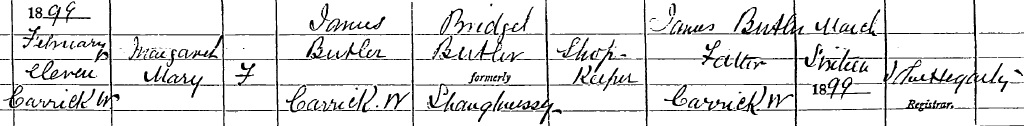 1899 James Bridget James Butler March
February Margaret Butler Butler Shop- Father Sixteen
Eleven Mary F formerly Keeper 1899
Carrick W Carrick. W Shaughnessy Carrick W Registrar.